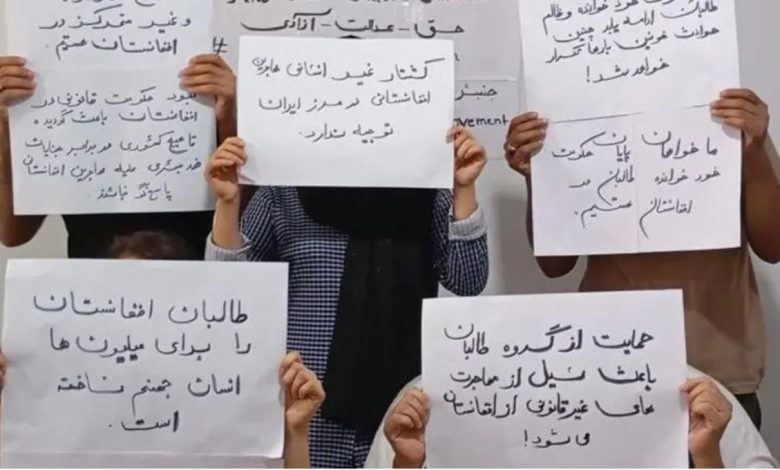 و غیر متمرکز در
افغانستان هستیم.
حق-عدالت-آزادی
#
طالبان ادامه یابد چنین
حوادث خونین بارها تکرار
خواهد شد!
نبود حکومت قانونی در
افغانستان باعث گردیده
تا هیچ کشوری در برابر جنایات
ضد بشری علیه مهاجرین افغانستان
پاسخگو نباشد.
کشتار غیر انسانی مهاجرین
افغانستانی در مرز ایران
توجیه ندارد.
جنبش
ovement
ما خواهان پایان حکومت
خود خوانده طالبان در
افغانستان هستیم.
طالبان افغانستان
را برای میلیون ها
انسان جهنم ساخته
است.
حمایت از گروه طالبان
باعث سیل از مهاجرت
های غیرقانونی از افغانستان
می شود!